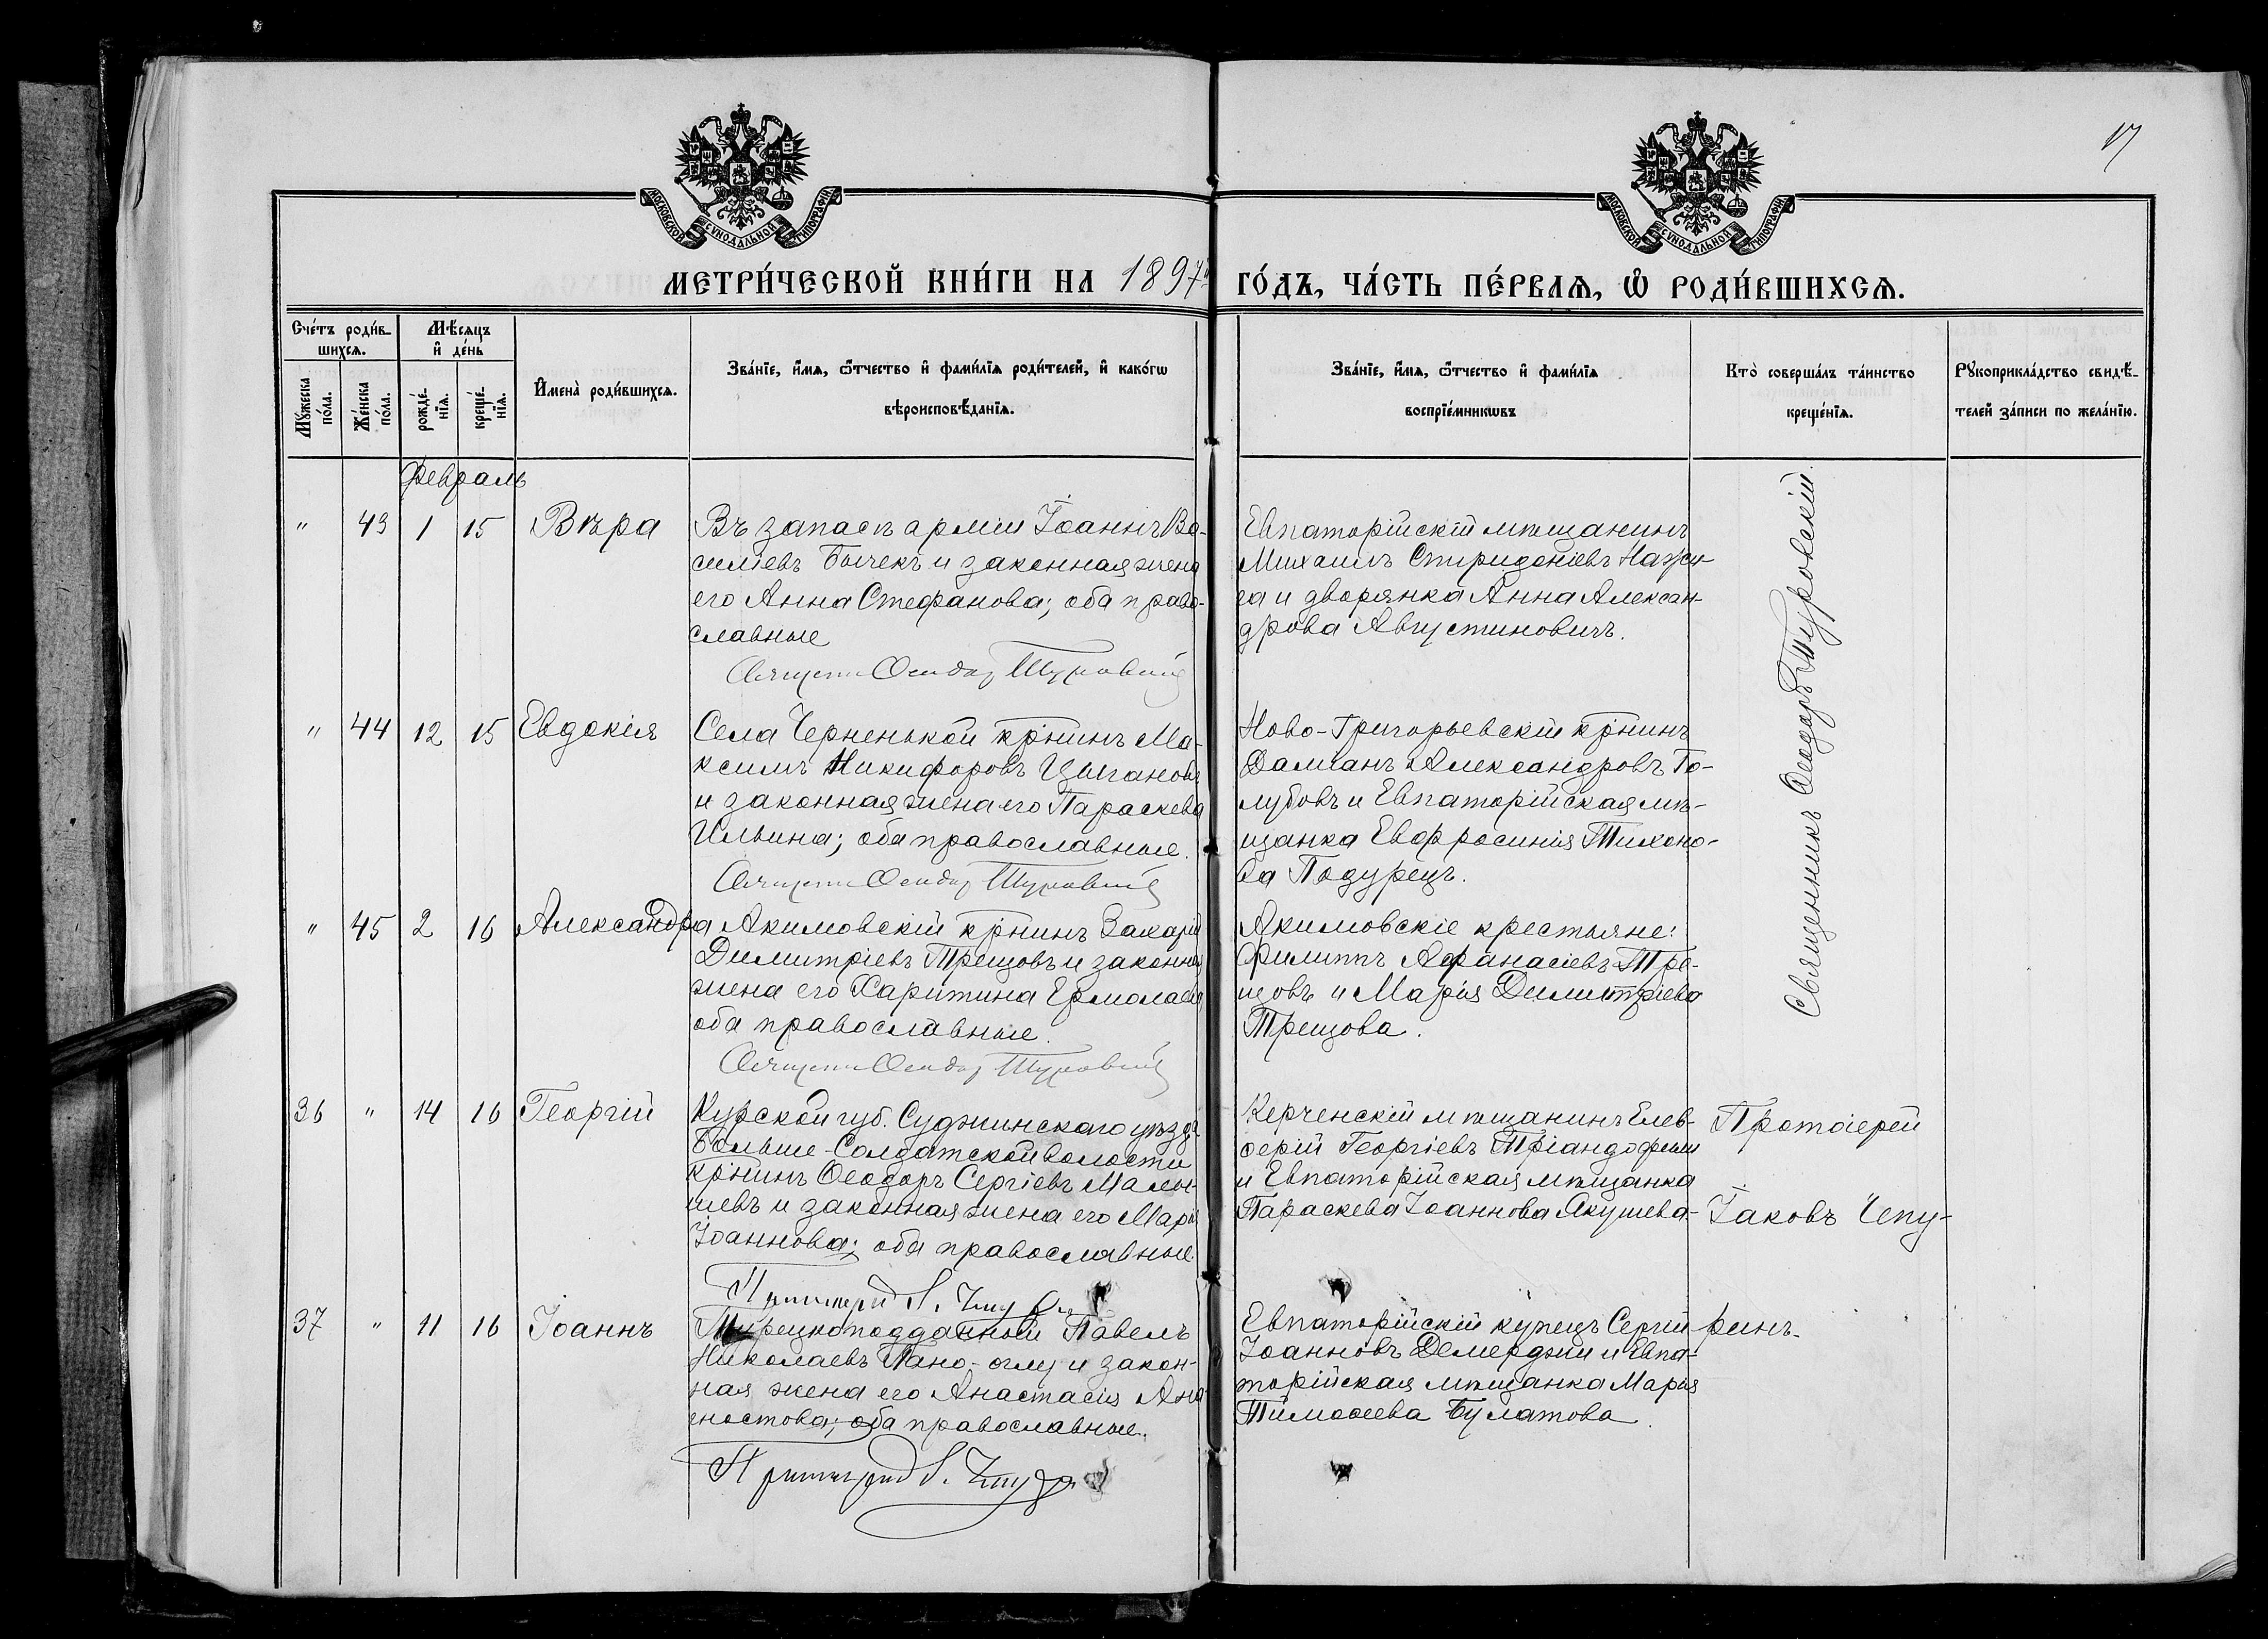 17
МОСКОВСКОЙ СУНОДАЛЬНОЙ ТИПОГРАФІИ
МОСКОВСКОЙ СУНОДАЛЬНОЙ ТИПОГРАФІИ
МЕТРИ́ЧЕСКОЙ КНИ́ГИ НА 1897й ГО́ДЪ, ЧА́СТЬ ПЕ́РВАѦ, Ѡ РОДИ́ВШИХСѦ.
Сче́тъ роди́вшихсѧ.
Мꙋ́жеска по́ла.
Же́нска по́ла.
Мѣ́сѧцъ и҆ де́нь
рожде́нїѧ.
креще́нїѧ.
И҆мена̀ роди́вшихсѧ.
Зва́нїе, и҆́мѧ, ѻ҆́тчество и҆ фами́лїѧ роди́телей, и҆ како́гѡ
вѣроисповѣ́данїѧ.
Зва́нїе, и҆́мѧ, ѻ҆́тчество и҆ фами́лїѧ
воспрїе́мникѡвъ
Кто̀ соверша́лъ та́инство
креще́нїѧ.
Рꙋкоприкла́дство свидѣ́-
телей за́писи по жела́нїю.
Февраль
" 43 1 15 Вѣра
Въ запасѣ арміи Іоаннъ Ва-
силіевъ Бычекъ и законная жена
его Анна Стефанова; оба право-
славные
Туровскій
Евпаторійскій мѣщанинъ
Михаилъ Спиридоніевъ
и дворянка Анна Алексан-
дрова Августиновичъ.
" 44 12 15 Евдокія
Села Черненькой крнинъ Ма-
ксимъ Никифоровъ Цыгановъ
и законная жена его Параскева
Ильина; оба православные.
Туровскій
Ново-Григорьевскій крнинъ
Даміанъ Александровъ Го-
лубовъ и Евпаторійская мѣ-
щанка Евфросинія Тихоно-
ва Подурецъ.
" 45 2 16 Александра
Акимовскій крнинъ Захарій
Димитріевъ Трещовъ и законная
жена его Харитина Ермолаева,
оба православные.
Туровскій
Акимовскіе крестьяне:
Филиппъ Афанасіевъ Тре-
щовъ и Марія Димитріева
Трещова.
Священникъ Ѳеодоръ Туровскій
36 " 14 16 Георгій
Курской губ. Суджинскаго уѣзда
Больше-Солдатской волости
крнинъ Ѳеодоръ Сергіевъ Малы-
шевъ и законная жена его Марія
Іоаннова; оба православные.
Протоіерей І. Чепуринъ
Керченскій мѣщанинъ Елев-
ѳерій Георгіевъ Тріандофили
и Евпаторійская мѣщанка
Параскева Іоаннова Якушева
Протоіерей
Іаковъ Чепу-
ринъ.
37 " 11 16 Іоаннъ
Турецкоподданный Павелъ
Николаевъ Пано-оглу и закон-
ная жена его Анастасія Ана-
гностова; оба православные.
Протоіерей І. Чепуринъ
Евпаторійскій купецъ Сергій
Іоанновъ Демерджи и Евпа-
торійская мѣщанка Марія
Тимоѳеева Булатова.